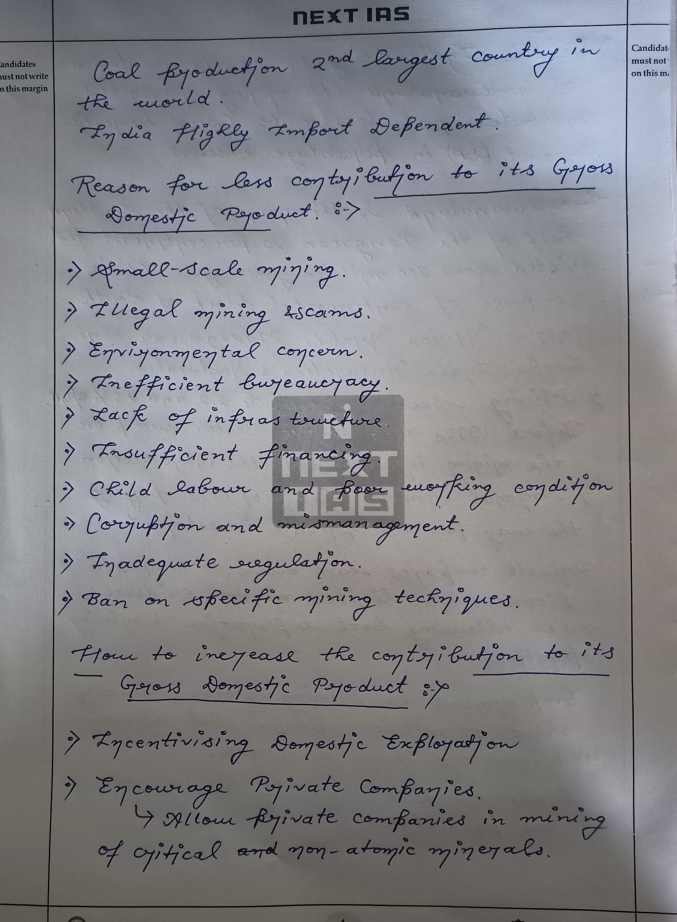 NEXT IAS
andidates
ust not write
n this margin
Candidat
must not
on this m
Coal Production 2nd largest country in
the world.
India Highly Import Dependent.
Reason for less contribution to its Gross
Domestic Product. :->
·> Small-scale mining.
·> Illegal mining & scams.
·> Environmental concern.
·> Inefficient bureaucracy.
·> Lack of infrastructure.
·> Insufficient financing.
·> Child labour and poor working condition
·> Corruption and mismanagement.
·> Inadequate regulation.
·> Ban on specific mining techniques.
How to increase the contribution to its
Gross Domestic Product :->
·> Incentivising Domestic Exploration
·> Encourage Private Companies.
↳ Allow private companies in mining
of critical and non-atomic minerals.
N
NEXT
IAS